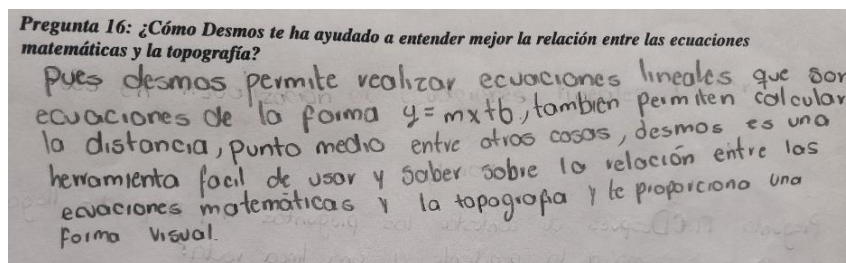 Pregunta 16: ¿Cómo Desmos te ha ayudado a entender mejor la relación entre las ecuaciones
matemáticas y la topografía?
Pues desmos permite realizar ecuaciones lineales que son
ecuaciones de la forma y = mx+b, tambien permiten calcular
la distancia, punto medio entre otras cosas, desmos es una
herramienta facil de usar y saber sobre la relación entre las
ecuaciones matemáticas y la topografia y te proporciona una
forma visual.